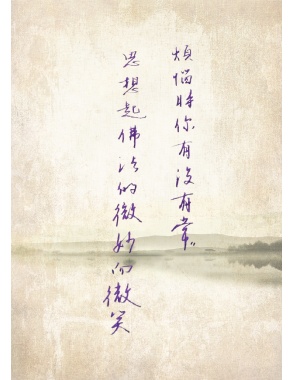 煩惱時你有沒有常
思想起佛法的微妙而微笑